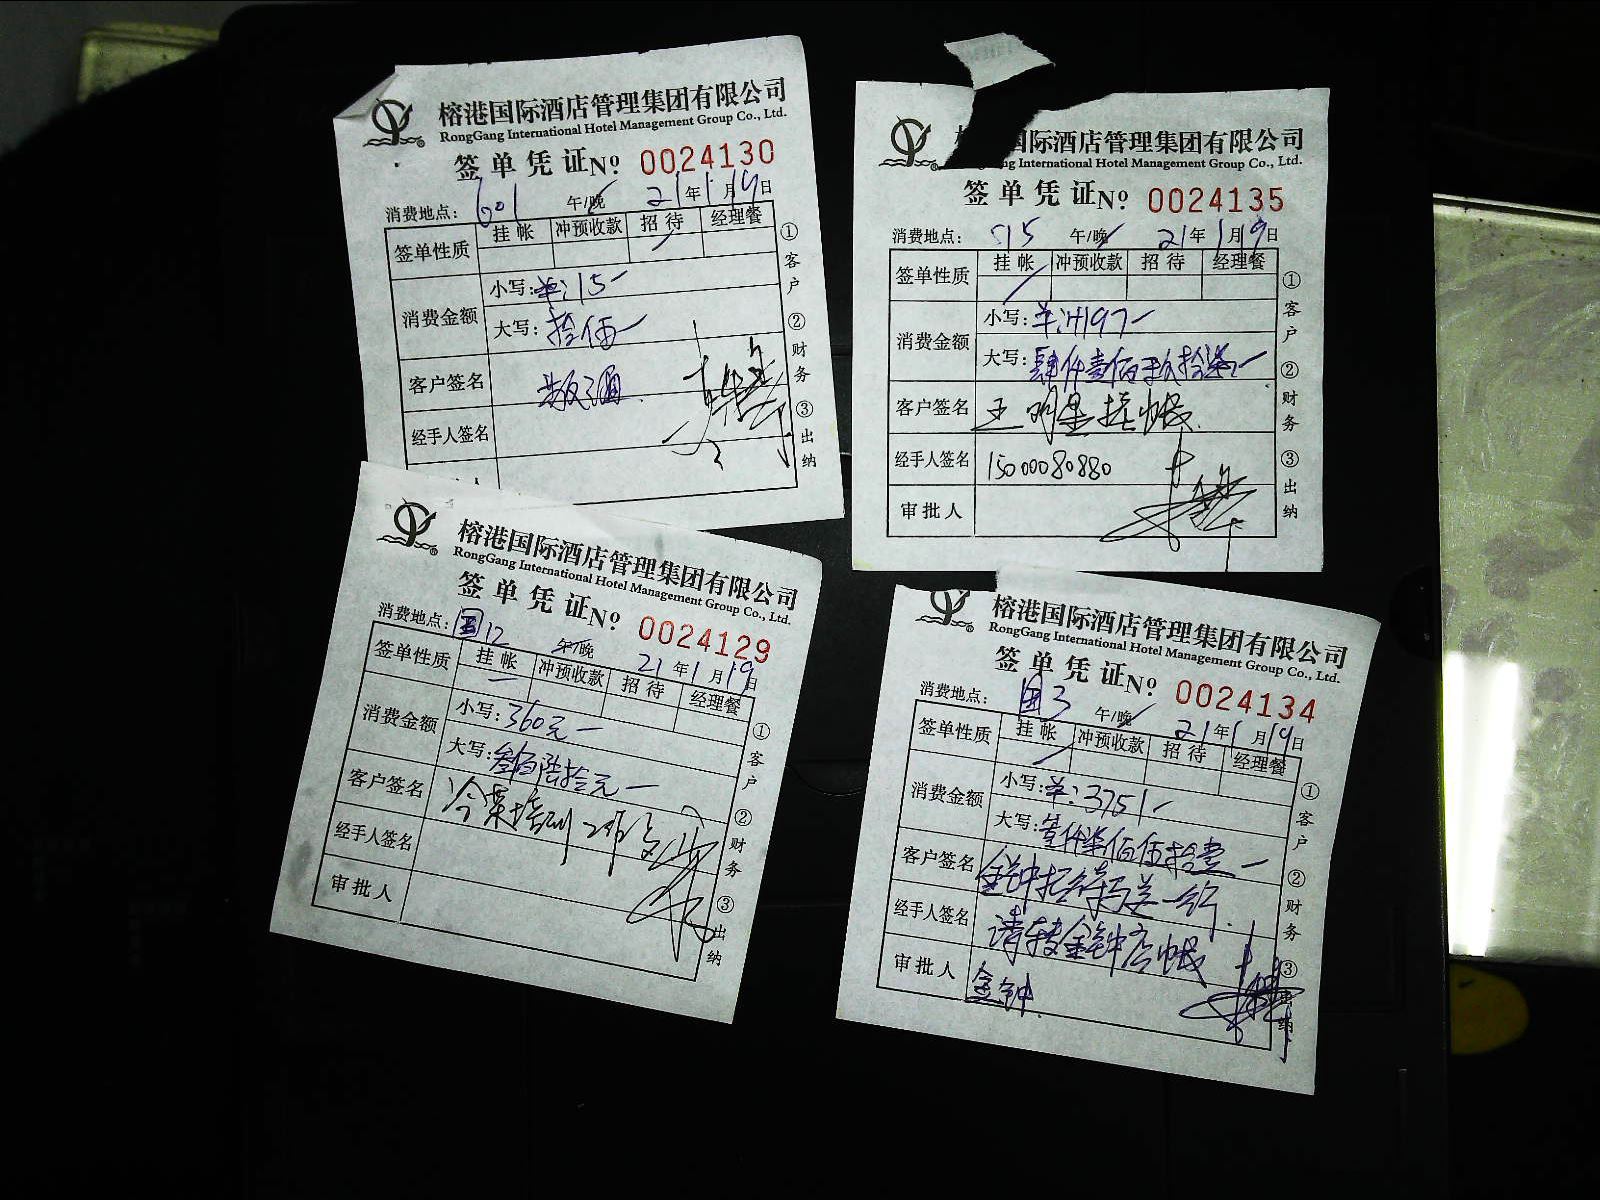 榕港国际酒店管理集团有限公司
RongGang International Hotel Management Group Co., Ltd.
签单凭证No 0024130
消费地点: 601 午/晚 21年1月19日
签单性质 挂帐 冲预收款 招待 经理餐
消费金额 小写: 15
大写: 拾伍
客户签名
经手人签名
①客户 ②财务 ③出纳
国际酒店管理集团有限公司
International Hotel Management Group Co., Ltd.
签单凭证No 0024135
消费地点: 515 午/晚 21年1月19日
签单性质 挂帐 冲预收款 招待 经理餐
消费金额 小写: 4197
大写: 肆仟壹佰玖拾柒
客户签名 王明星挂帐
经手人签名 15000080880
审批人
①客户 ②财务 ③出纳
榕港国际酒店管理集团有限公司
RongGang International Hotel Management Group Co., Ltd.
签单凭证No 0024129
消费地点: 12 午/晚 21年1月19日
签单性质 挂帐 冲预收款 招待 经理餐
消费金额 小写: 360元
大写: 叁佰陆拾元
客户签名 冷菜培训
经手人签名
审批人
①客户 ②财务 ③出纳
榕港国际酒店管理集团有限公司
RongGang International Hotel Management Group Co., Ltd.
签单凭证No 0024134
消费地点: 3 午/晚 21年1月19日
签单性质 挂帐 冲预收款 招待 经理餐
消费金额 小写: 3751
大写: 仟柒佰伍拾壹
客户签名 金钟招待
经手人签名 请转金钟店帐
审批人 金钟
①客户 ②财务 ③出纳